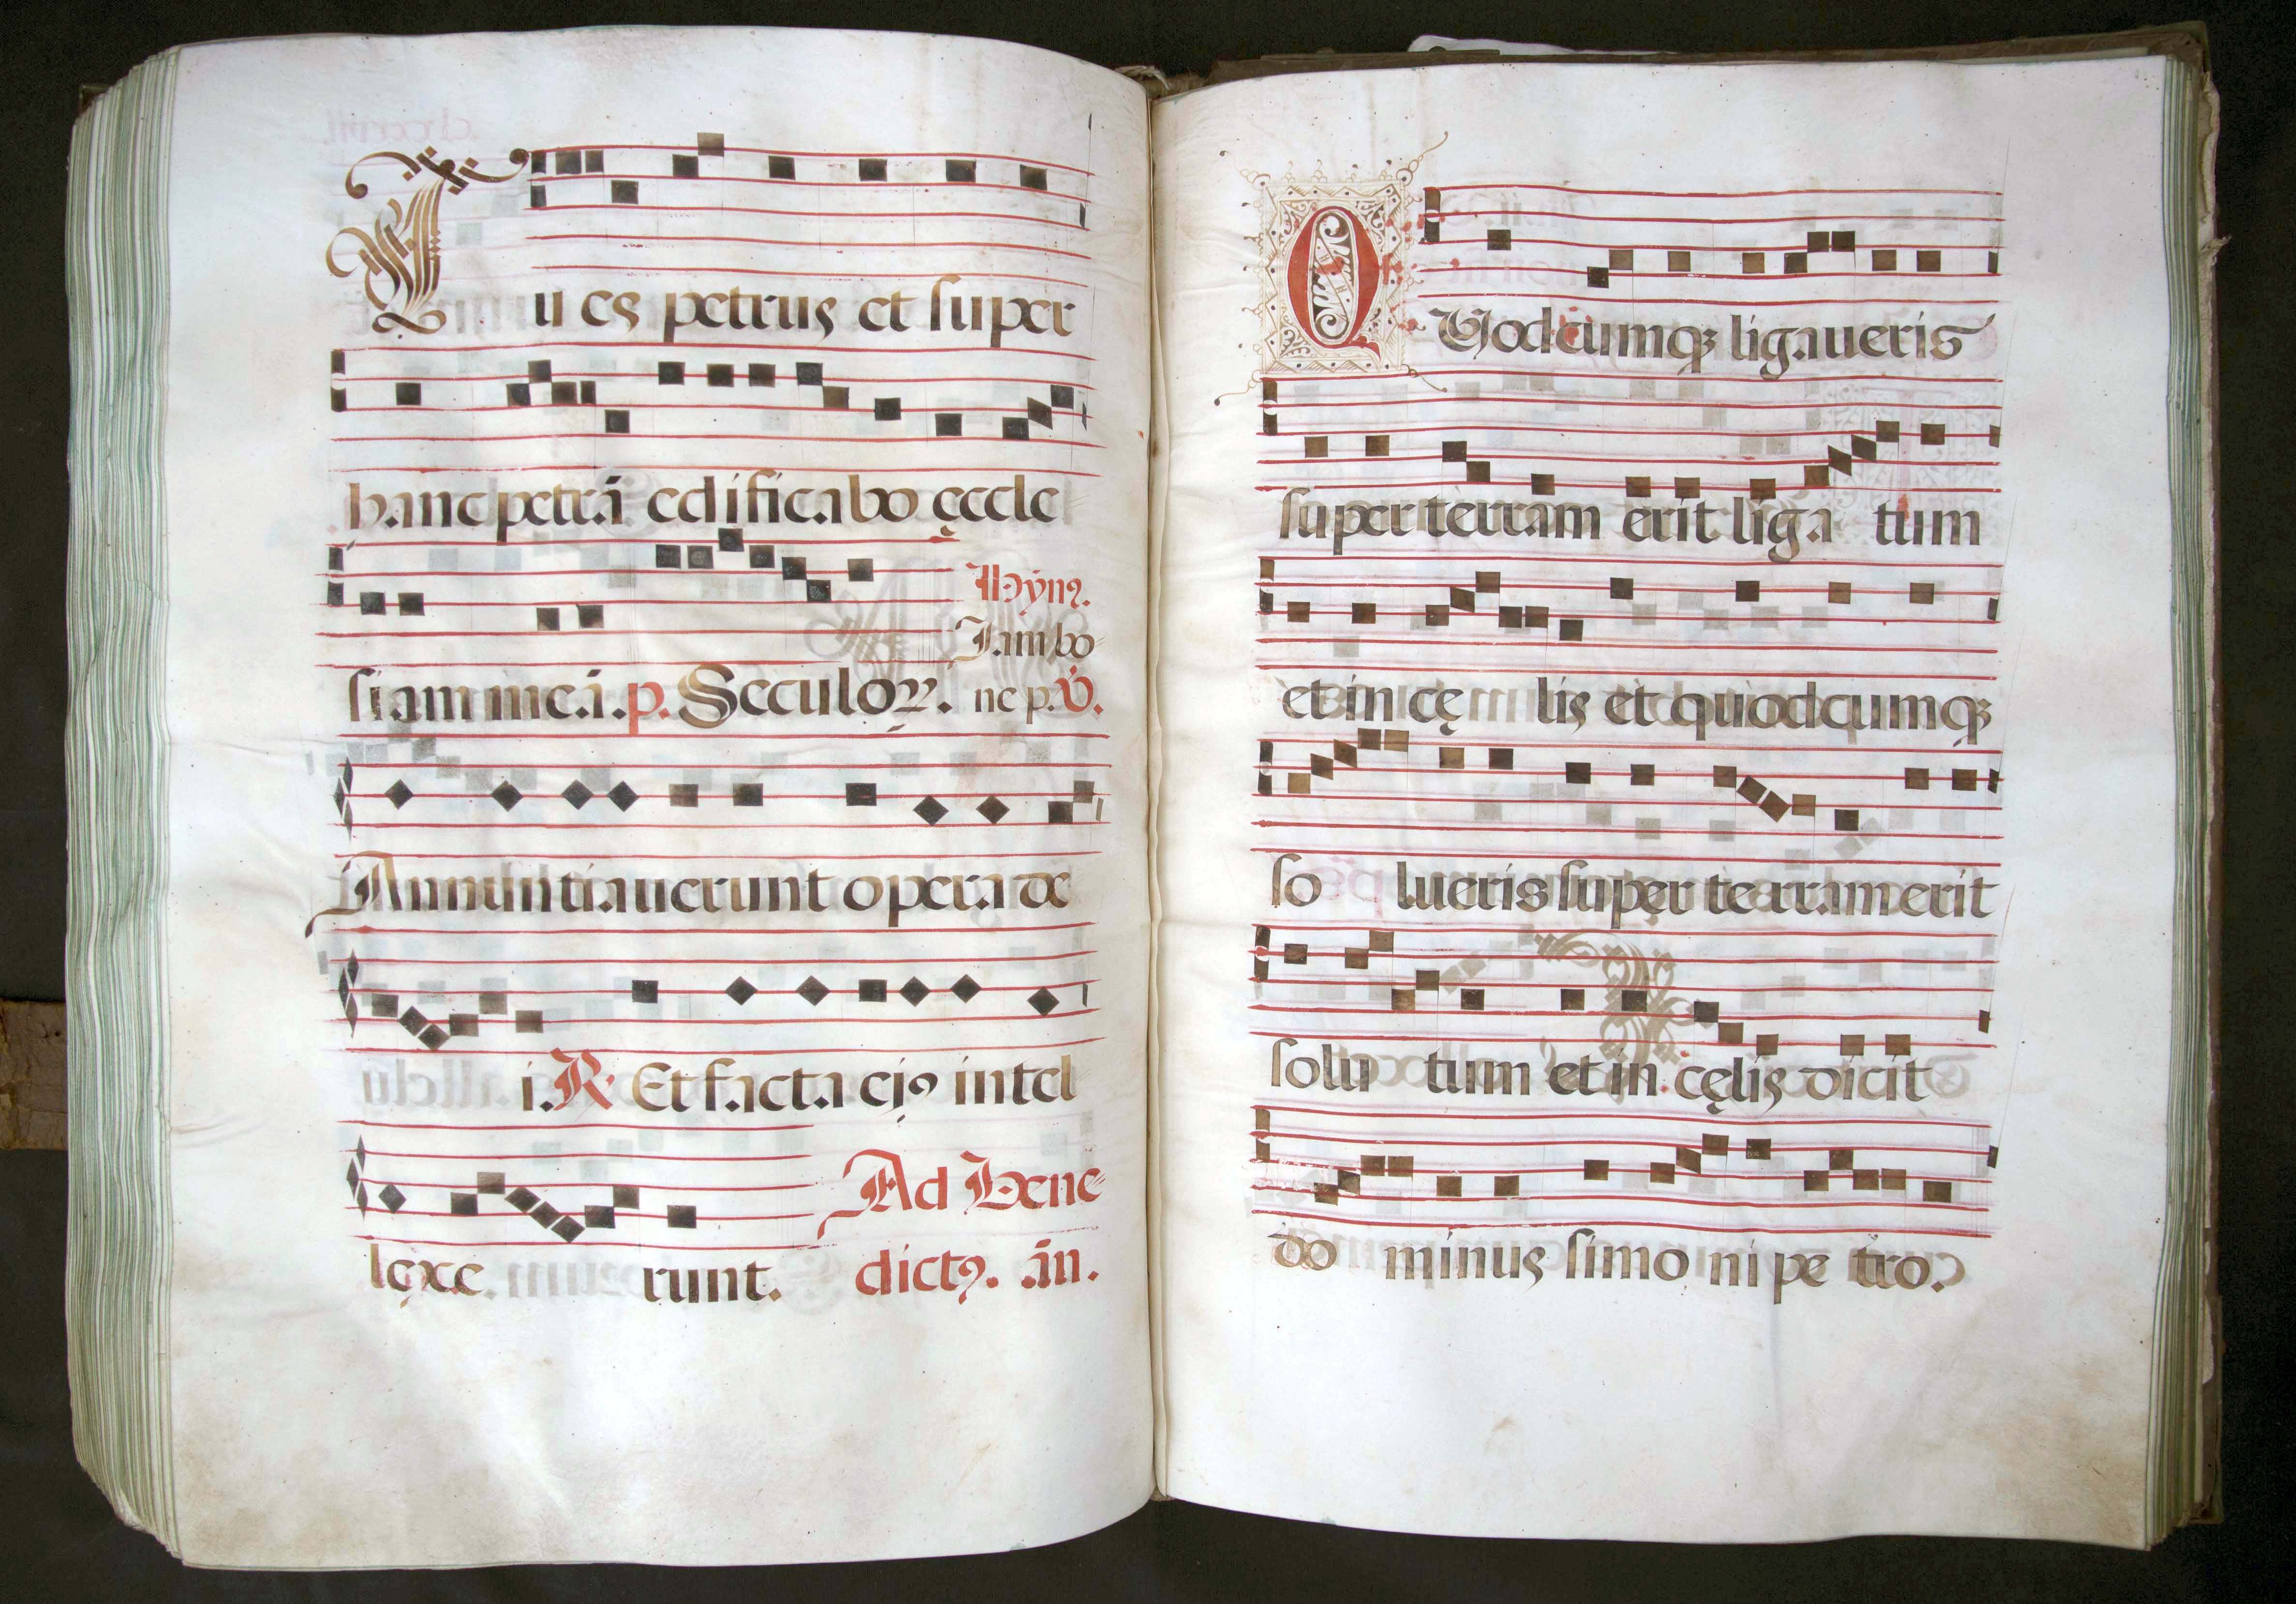 Tu es petrus et super
hanc petrā edificabo ęccle
Hÿmꝰ.
Iam bo
siam meā. p. Seculoꝝ. ne p. V̇.
Annuntiauerunt opera de
i. R. Et facta ejꝰ intel
Ad Bene
lęxe runt. dictꝰ. ān.
QUodcumqꝫ ligaueris
super terram erit liga tum
et in cę lis et quodcumqꝫ
so lueris super terram erit
solu tum et in cęlis dicit
do minus simo ni pe tro.